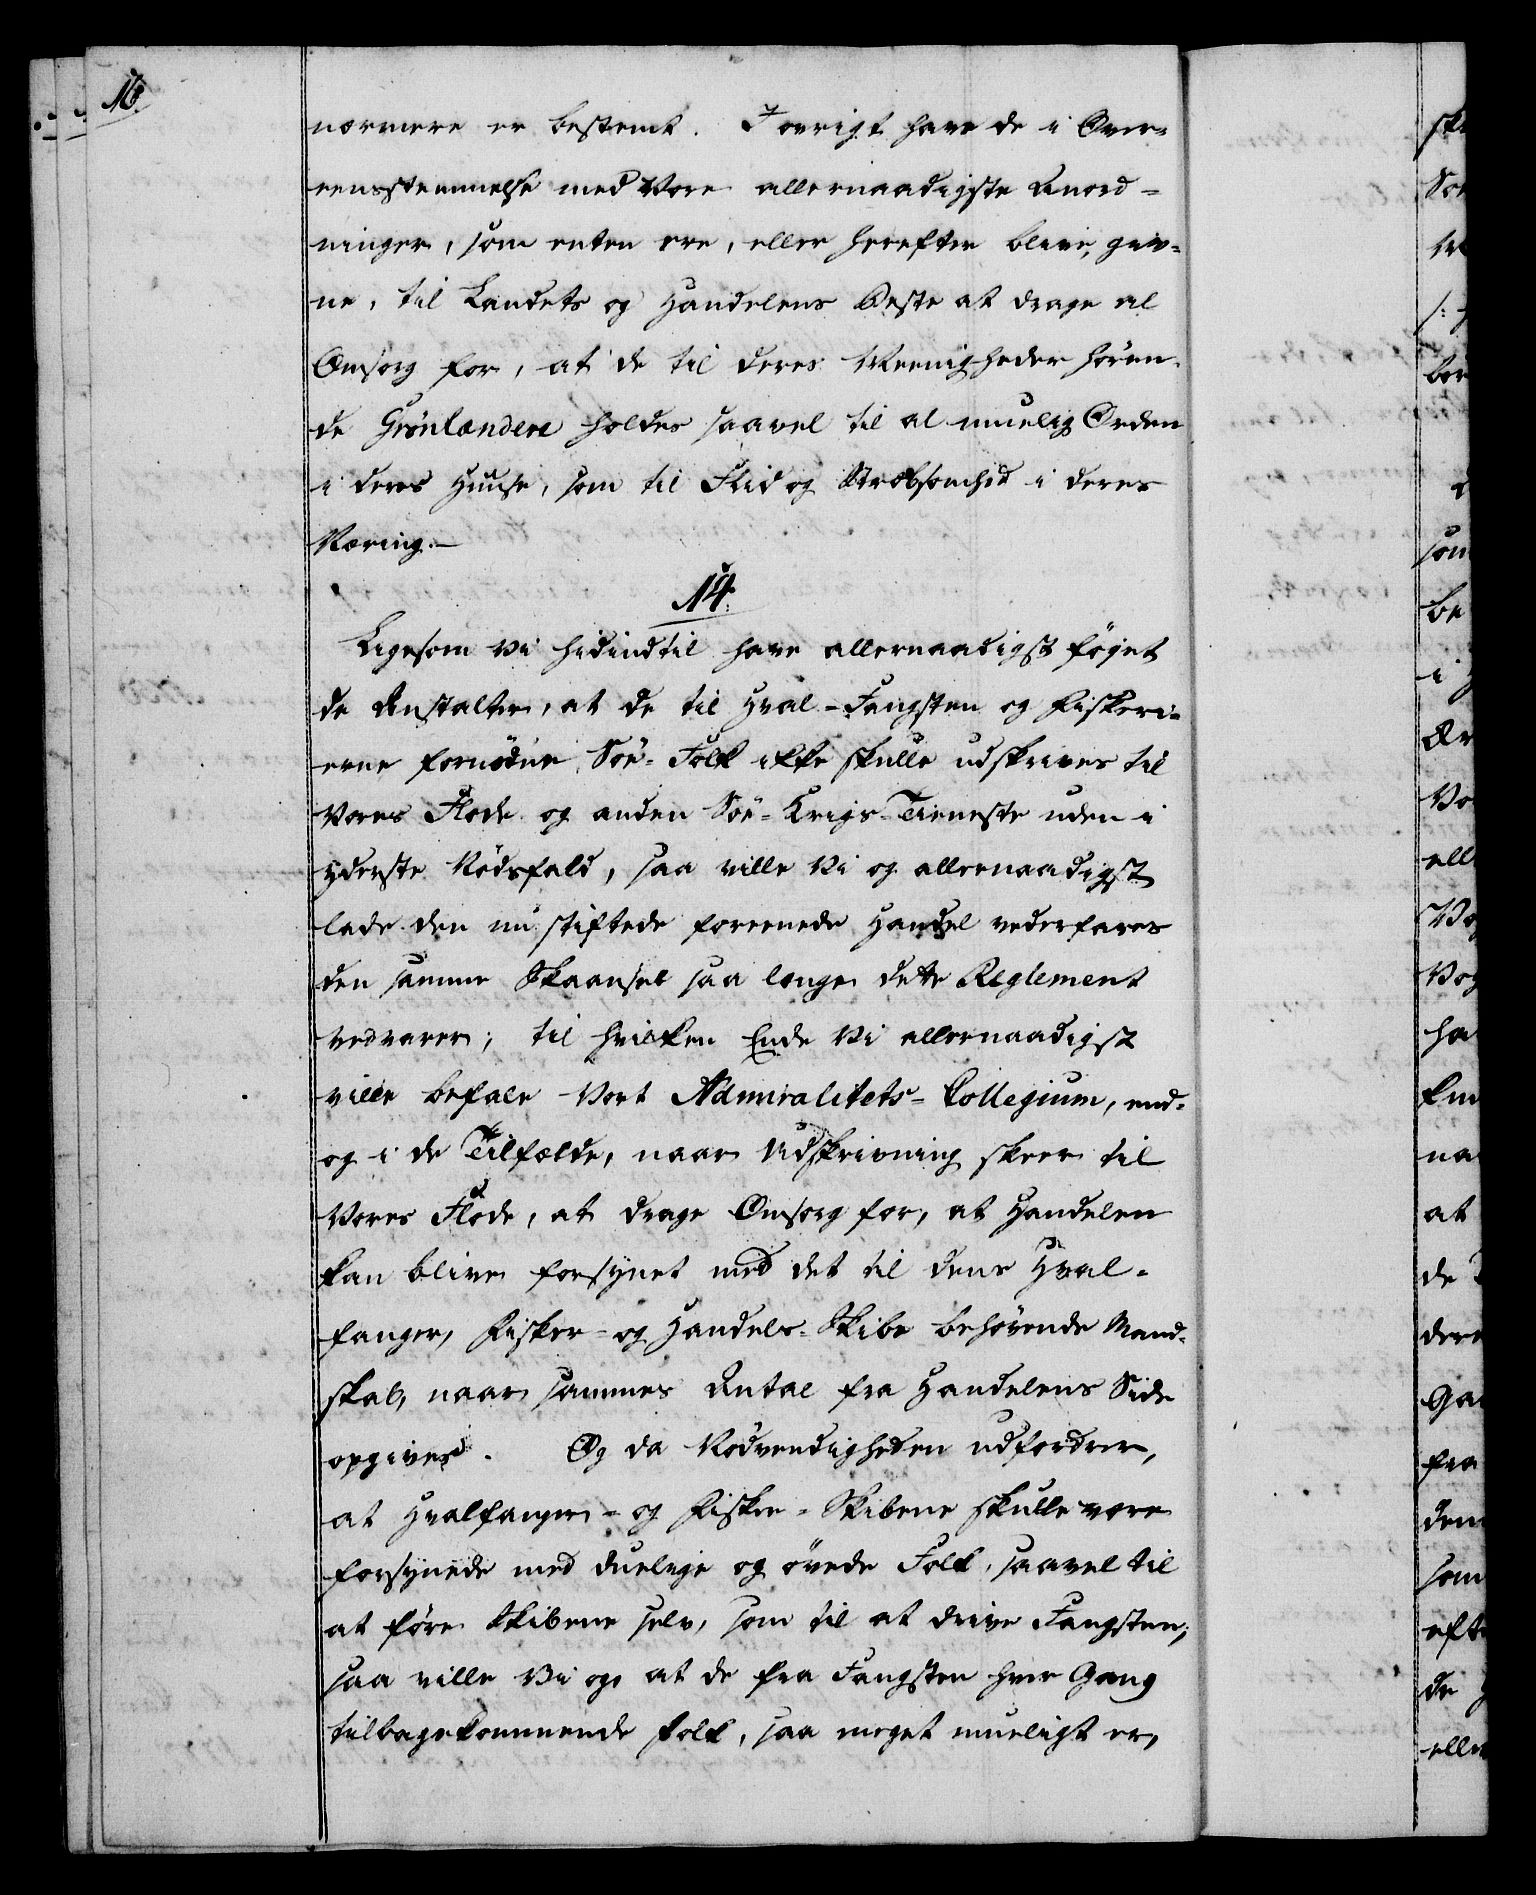 16.
nærmere er bestemt. I øvrigt have de i Over-
eensstemmelse med Vore allernaadigste Anord-
ninger, som enten ere, eller herefter blive, giv-
ne, til Landets og Handelens Beste at drage al
Omsorg for, at de til deres Meenigheder høren-
de Grønlændere holdes saavel til al muelig Orden
i deres Huuse, som til Flid og Stræbsomhed i deres
Næring.—
14.
Ligesom Vi hidindtil have allernaadigst føyet
de Anstalter, at de til Hval-Fangsten og Fiskeri-
erne fornødne Søe-Folk ikke skulle udskrives til
Vores Flode og anden Søe-Krigs-Tieneste uden i
yderste Nødsfald, saa ville Vi og allernaadigst
lade den nu stiftede foreenede Handel vederfares
den samme Skaansel saa længe dette Reglement
vedvarer; til hvilken Ende Vi allernaadigst
ville befale Vort Admiralitets-Collegium, end-
og i de Tilfælde, naar Udskrivning skeer til
Vores Flode, at drage Omsorg for, at Handelen
kan blive forsynet med det til dens Hval-
fanger, Fisker- og Handels-Skibe behøvende Mand-
skab, naar sammes Antal fra Handelens Side
opgives. Og da Nødvendigheden udfordrer,
at Hvalfanger- og Fisker-Skibene skulle være
forsynede med duelige og øvede Folk, saavel til
at føre Skibene selv, som til at drive Fangsten;
saa ville Vi og, at de fra Fangsten hver Gang
tilbagekommende Folk, saa meget mueligt er,